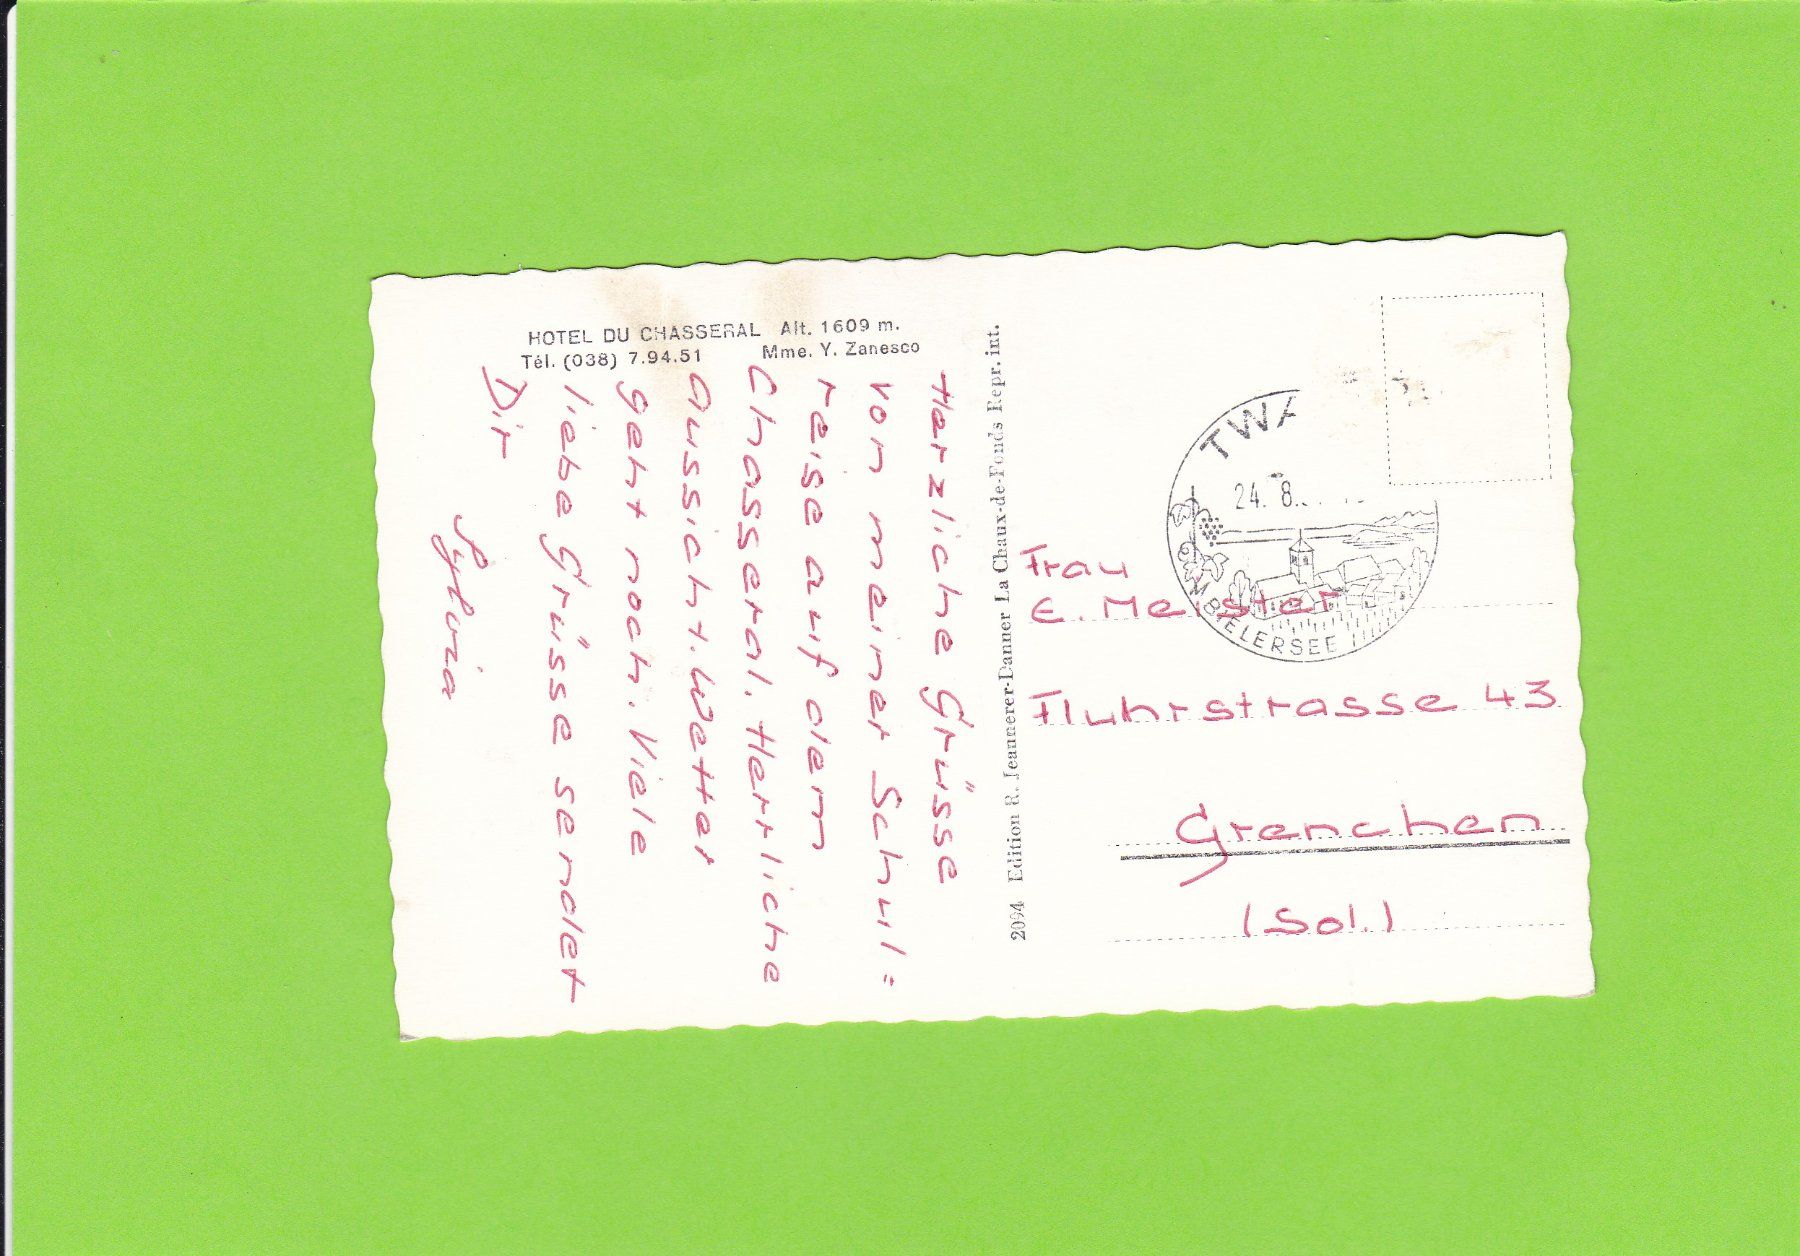 HOTEL DU CHASSERAL Alt. 1609 m.
Tél. (038) 7.94.51 Mme. Y. Zanesco
Herzliche Grüsse
von meiner Schul=
reise auf dem
Chasseral. Herrliche
Aussicht. Wetter
geht noch. Viele
liebe Grüsse sendet
Dir
Sylvia
2094 Edition R. Jeannerer-Danner La Chaux-de-Fonds Repr. int.
TWA
24. 8.
AM BIELERSEE
Frau
E. Meister
Fluhrstrasse 43
Grenchen
(Sol.)